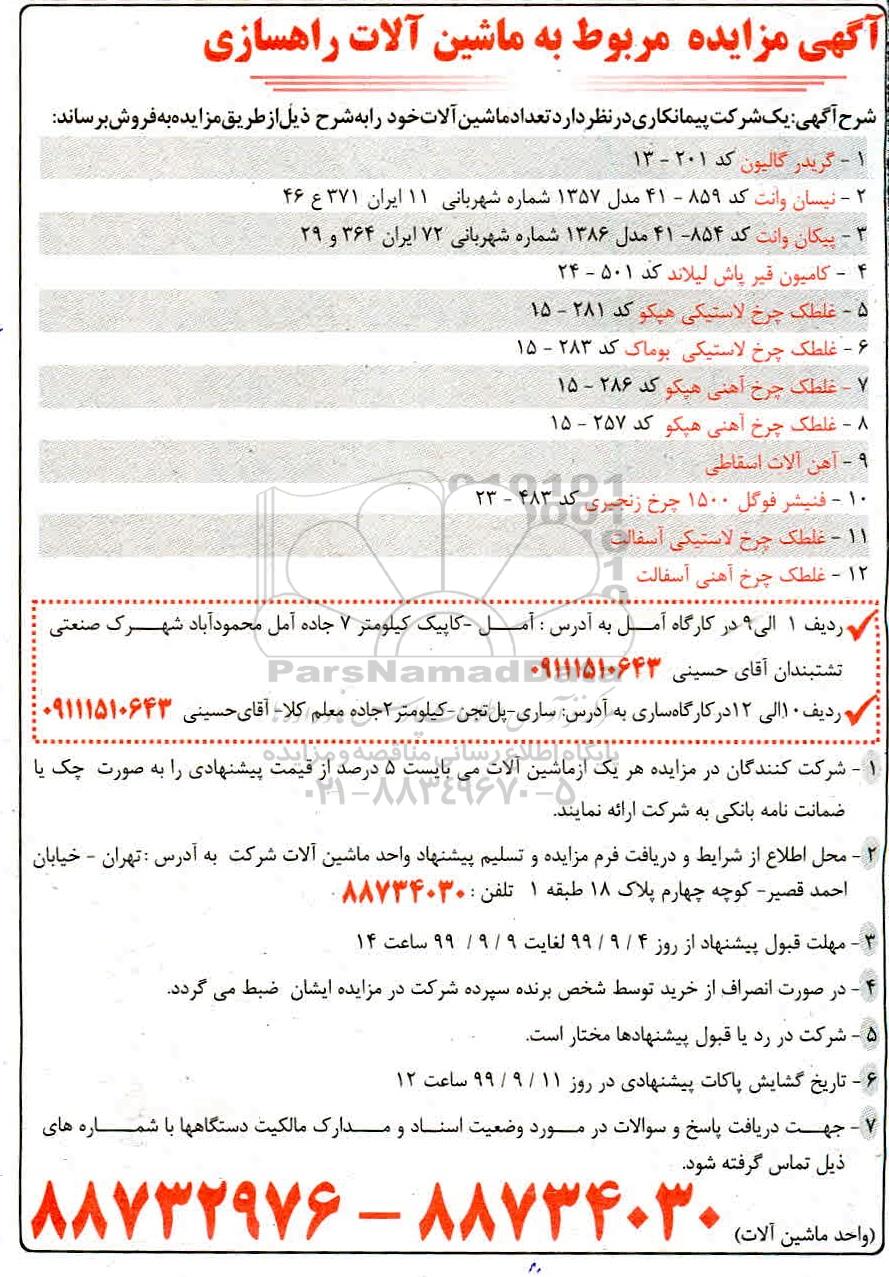 آگهی مزایده مربوط به ماشین آلات راهسازی
شرح آگهی: یک شرکت پیمانکاری در نظر دارد تعداد ماشین آلات خود را به شرح ذیل از طریق مزایده به فروش برساند:
۱ - گریدر گالیون کد ۲۰۱ - ۱۳
۲ - نیسان وانت کد ۸۵۹ - ۴۱ مدل ۱۳۵۷ شماره شهربانی ۱۱ ایران ۳۷۱ ع ۴۶
۳ - پیکان وانت کد ۸۵۴- ۴۱ مدل ۱۳۸۶ شماره شهربانی ۷۲ ایران ۳۶۴ و ۲۹
۴ - کامیون قیر پاش لیلاند کد ۵۰۱ - ۲۴
۵ - غلطک چرخ لاستیکی هپکو کد ۲۸۱ - ۱۵
۶ - غلطک چرخ لاستیکی بوماک کد ۲۸۳ - ۱۵
۷ - غلطک چرخ آهنی هپکو کد ۲۸۶ - ۱۵
۸ - غلطک چرخ آهنی هپکو کد ۲۵۷ - ۱۵
۹ - آهن آلات اسقاطی
۱۰ - فنیشر فوگل ۱۵۰۰ چرخ زنجیری کد ۴۸۳ - ۲۳
۱۱ - غلطک چرخ لاستیکی آسفالت
۱۲ - غلطک چرخ آهنی آسفالت
ردیف ۱ الی ۹ در کارگاه آمل به آدرس : آمل -کاپیک کیلومتر ۷ جاده آمل محمودآباد شهرک صنعتی
تشتبندان آقای حسینی ۰۹۱۱۱۵۱۰۶۴۳
ParsNamadData
ردیف ۱۰الی ۱۲در کارگاه ساری به آدرس: ساری-پل تجن-کیلومتر۲جاده معلم کلا- آقای حسینی ۰۹۱۱۱۵۱۰۶۴۳
پایگاه اطلاع رسانی مناقصه و مزایده
۱ - شرکت کنندگان در مزایده هر یک ازماشین آلات می بایست ۵ درصد از قیمت پیشنهادی را به صورت چک یا
۰۲۱-۸۸۳۴۹۶۷۰-۵
ضمانت نامه بانکی به شرکت ارائه نمایند.
۲ - محل اطلاع از شرایط و دریافت فرم مزایده و تسلیم پیشنهاد واحد ماشین آلات شرکت به آدرس :تهران - خیابان
احمد قصیر- کوچه چهارم پلاک ۱۸ طبقه ۱ تلفن : ۸۸۷۳۴۰۳۰
۳ - مهلت قبول پیشنهاد از روز ۴ / ۹ / ۹۹ لغایت ۹ / ۹ / ۹۹ ساعت ۱۴
۴ - در صورت انصراف از خرید توسط شخص برنده سپرده شرکت در مزایده ایشان ضبط می گردد.
۵ - شرکت در رد یا قبول پیشنهادها مختار است.
۶ - تاریخ گشایش پاکات پیشنهادی در روز ۱۱ / ۹ / ۹۹ ساعت ۱۲
۷ - جهت دریافت پاسخ و سوالات در مورد وضعیت اسناد و مدارک مالکیت دستگاهها با شماره های
ذیل تماس گرفته شود.
(واحد ماشین آلات) ۸۸۷۳۴۰۳۰ - ۸۸۷۳۲۹۷۶